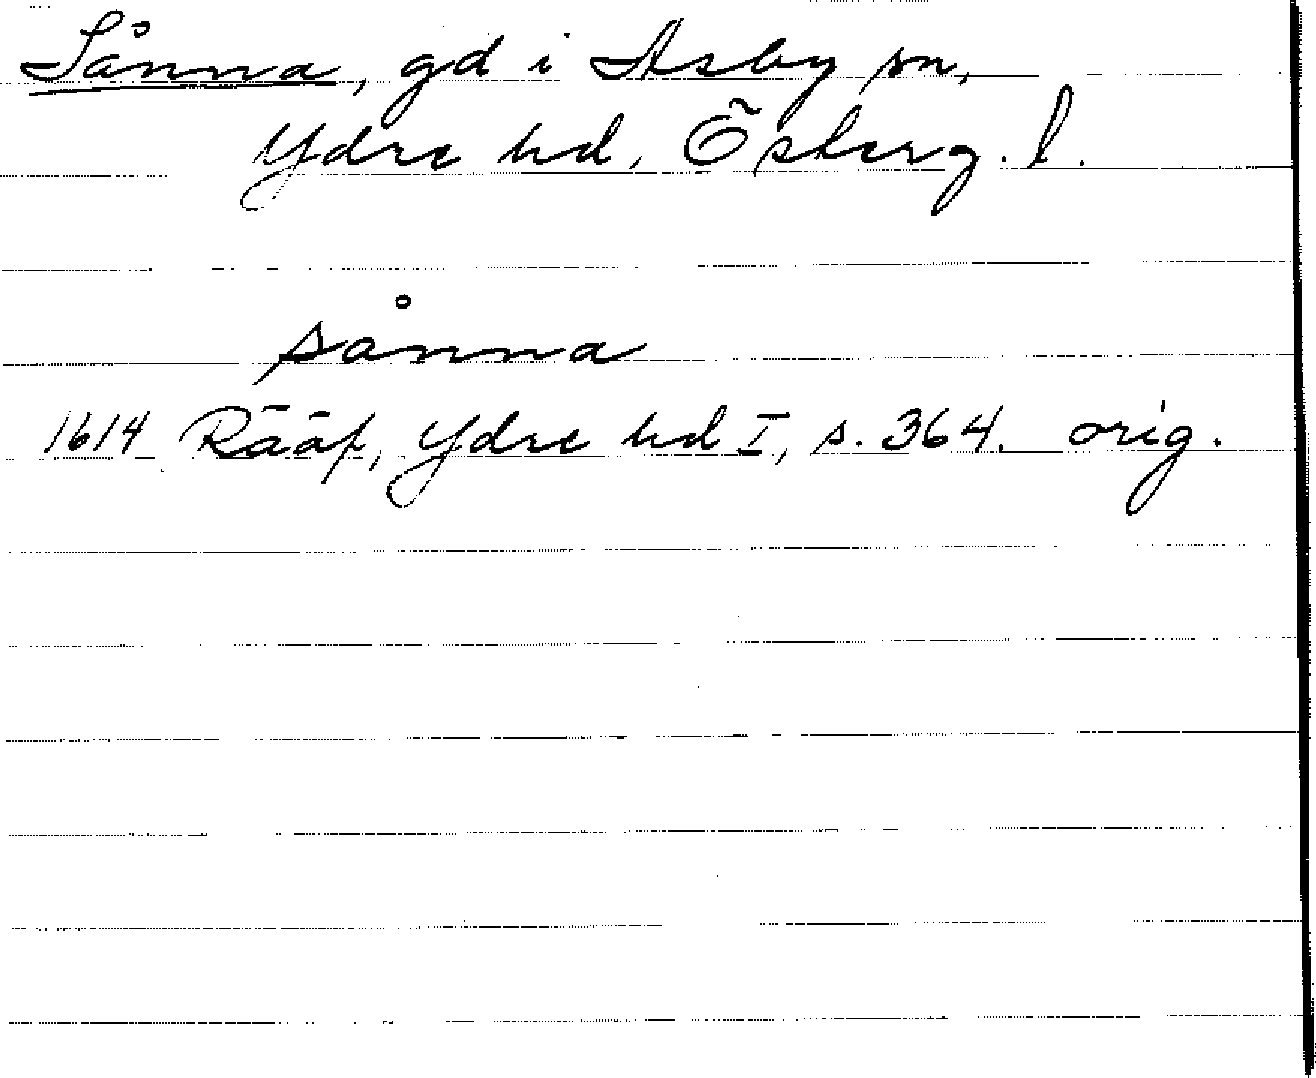 Sånna, gd i Asby sn,
Ydre hd, Österg. l.
sånna
1614 Rääf, Ydre hd I, s. 364. orig.